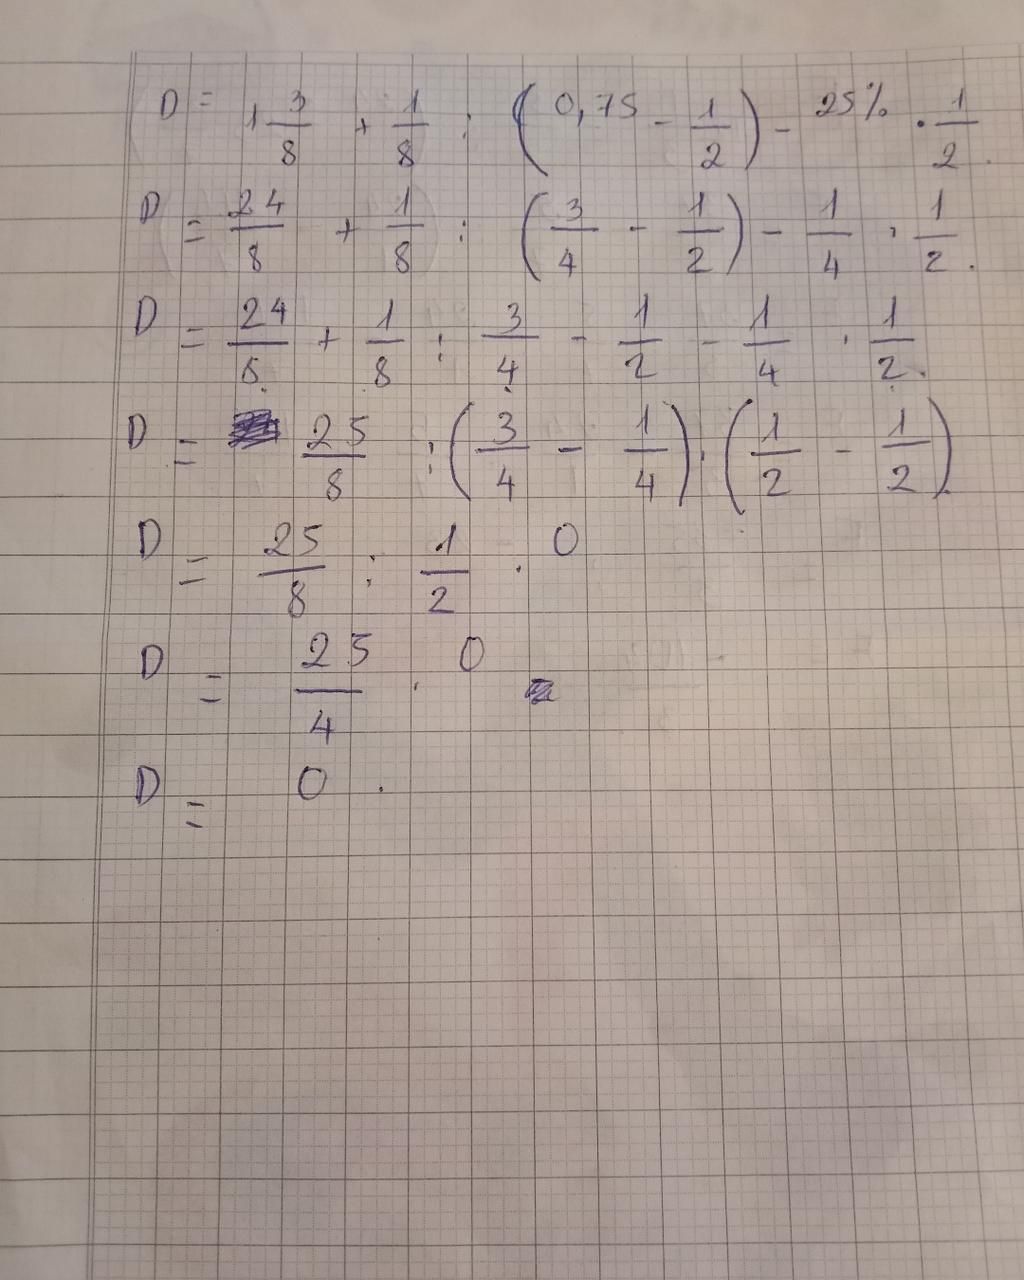 D = 1 3/8 + 1/8 : (0,75 - 1/2) - 25% · 1/2.
D = 24/8 + 1/8 : (3/4 - 1/2) - 1/4 · 1/2.
D = 24/8 + 1/8 : 3/4 - 1/2 - 1/4 · 1/2.
D = 25/8 : (3/4 - 1/4) · (1/2 - 1/2)
D = 25/8 : 1/2 · 0
D = 25/4 · 0
D = 0.